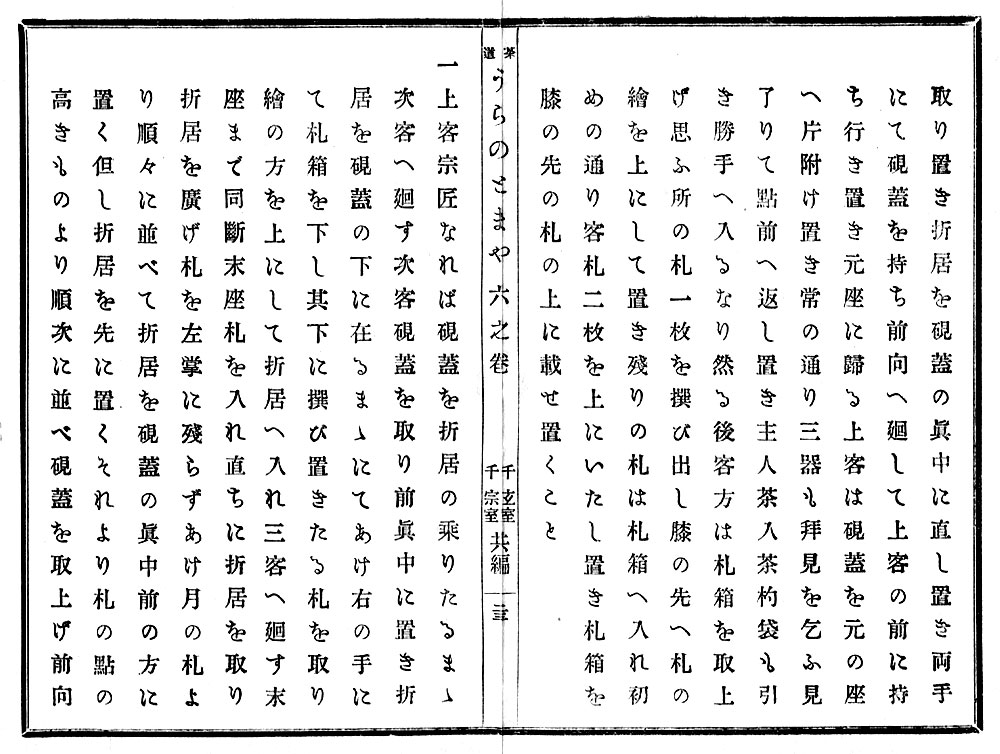 取り置き折居を硯蓋の眞中に直し置き両手
にて硯蓋を持ち前向へ廻して上客の前に持
ち行き置き元座に歸る上客は硯蓋を元の座
へ片附け置き常の通り三器も拜見を乞ふ見
了りて點前へ返し置き主人茶入茶杓袋も引
き勝手へ入るなり然る後客方は札箱を取上
げ思ふ所の札一枚を撰び出し膝の先へ札の
繪を上にして置き殘りの札は札箱へ入れ初
めの通り客札二枚を上にいたし置き札箱を
膝の先の札の上に載せ置くこと
茶道 うらのとまや 六之卷 千玄室 千宗室 共編 三
一上客宗匠なれば硯蓋を折居の乘りたるまゝ
次客へ廻す次客硯蓋を取り前眞中に置き折
居を硯蓋の下に在るまゝにてあけ右の手に
て札箱を下し其下に撰び置きたる札を取り
繪の方を上にして折居へ入れ三客へ廻す末
座まで同斷末座札を入れ直ちに折居を取り
折居を廣げ札を左掌に殘らずあけ月の札よ
り順々に並べて折居を硯蓋の眞中前の方に
置く但し折居を先に置くそれより札の點の
高きものより順次に並べ硯蓋を取上げ前向